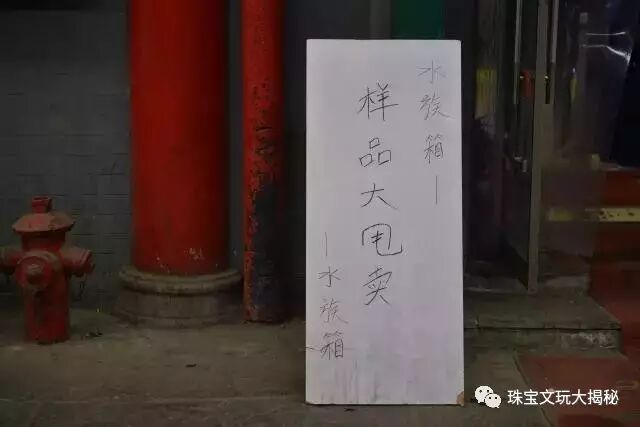 水族箱—
样品大甩卖
—水族箱
珠宝文玩大揭秘